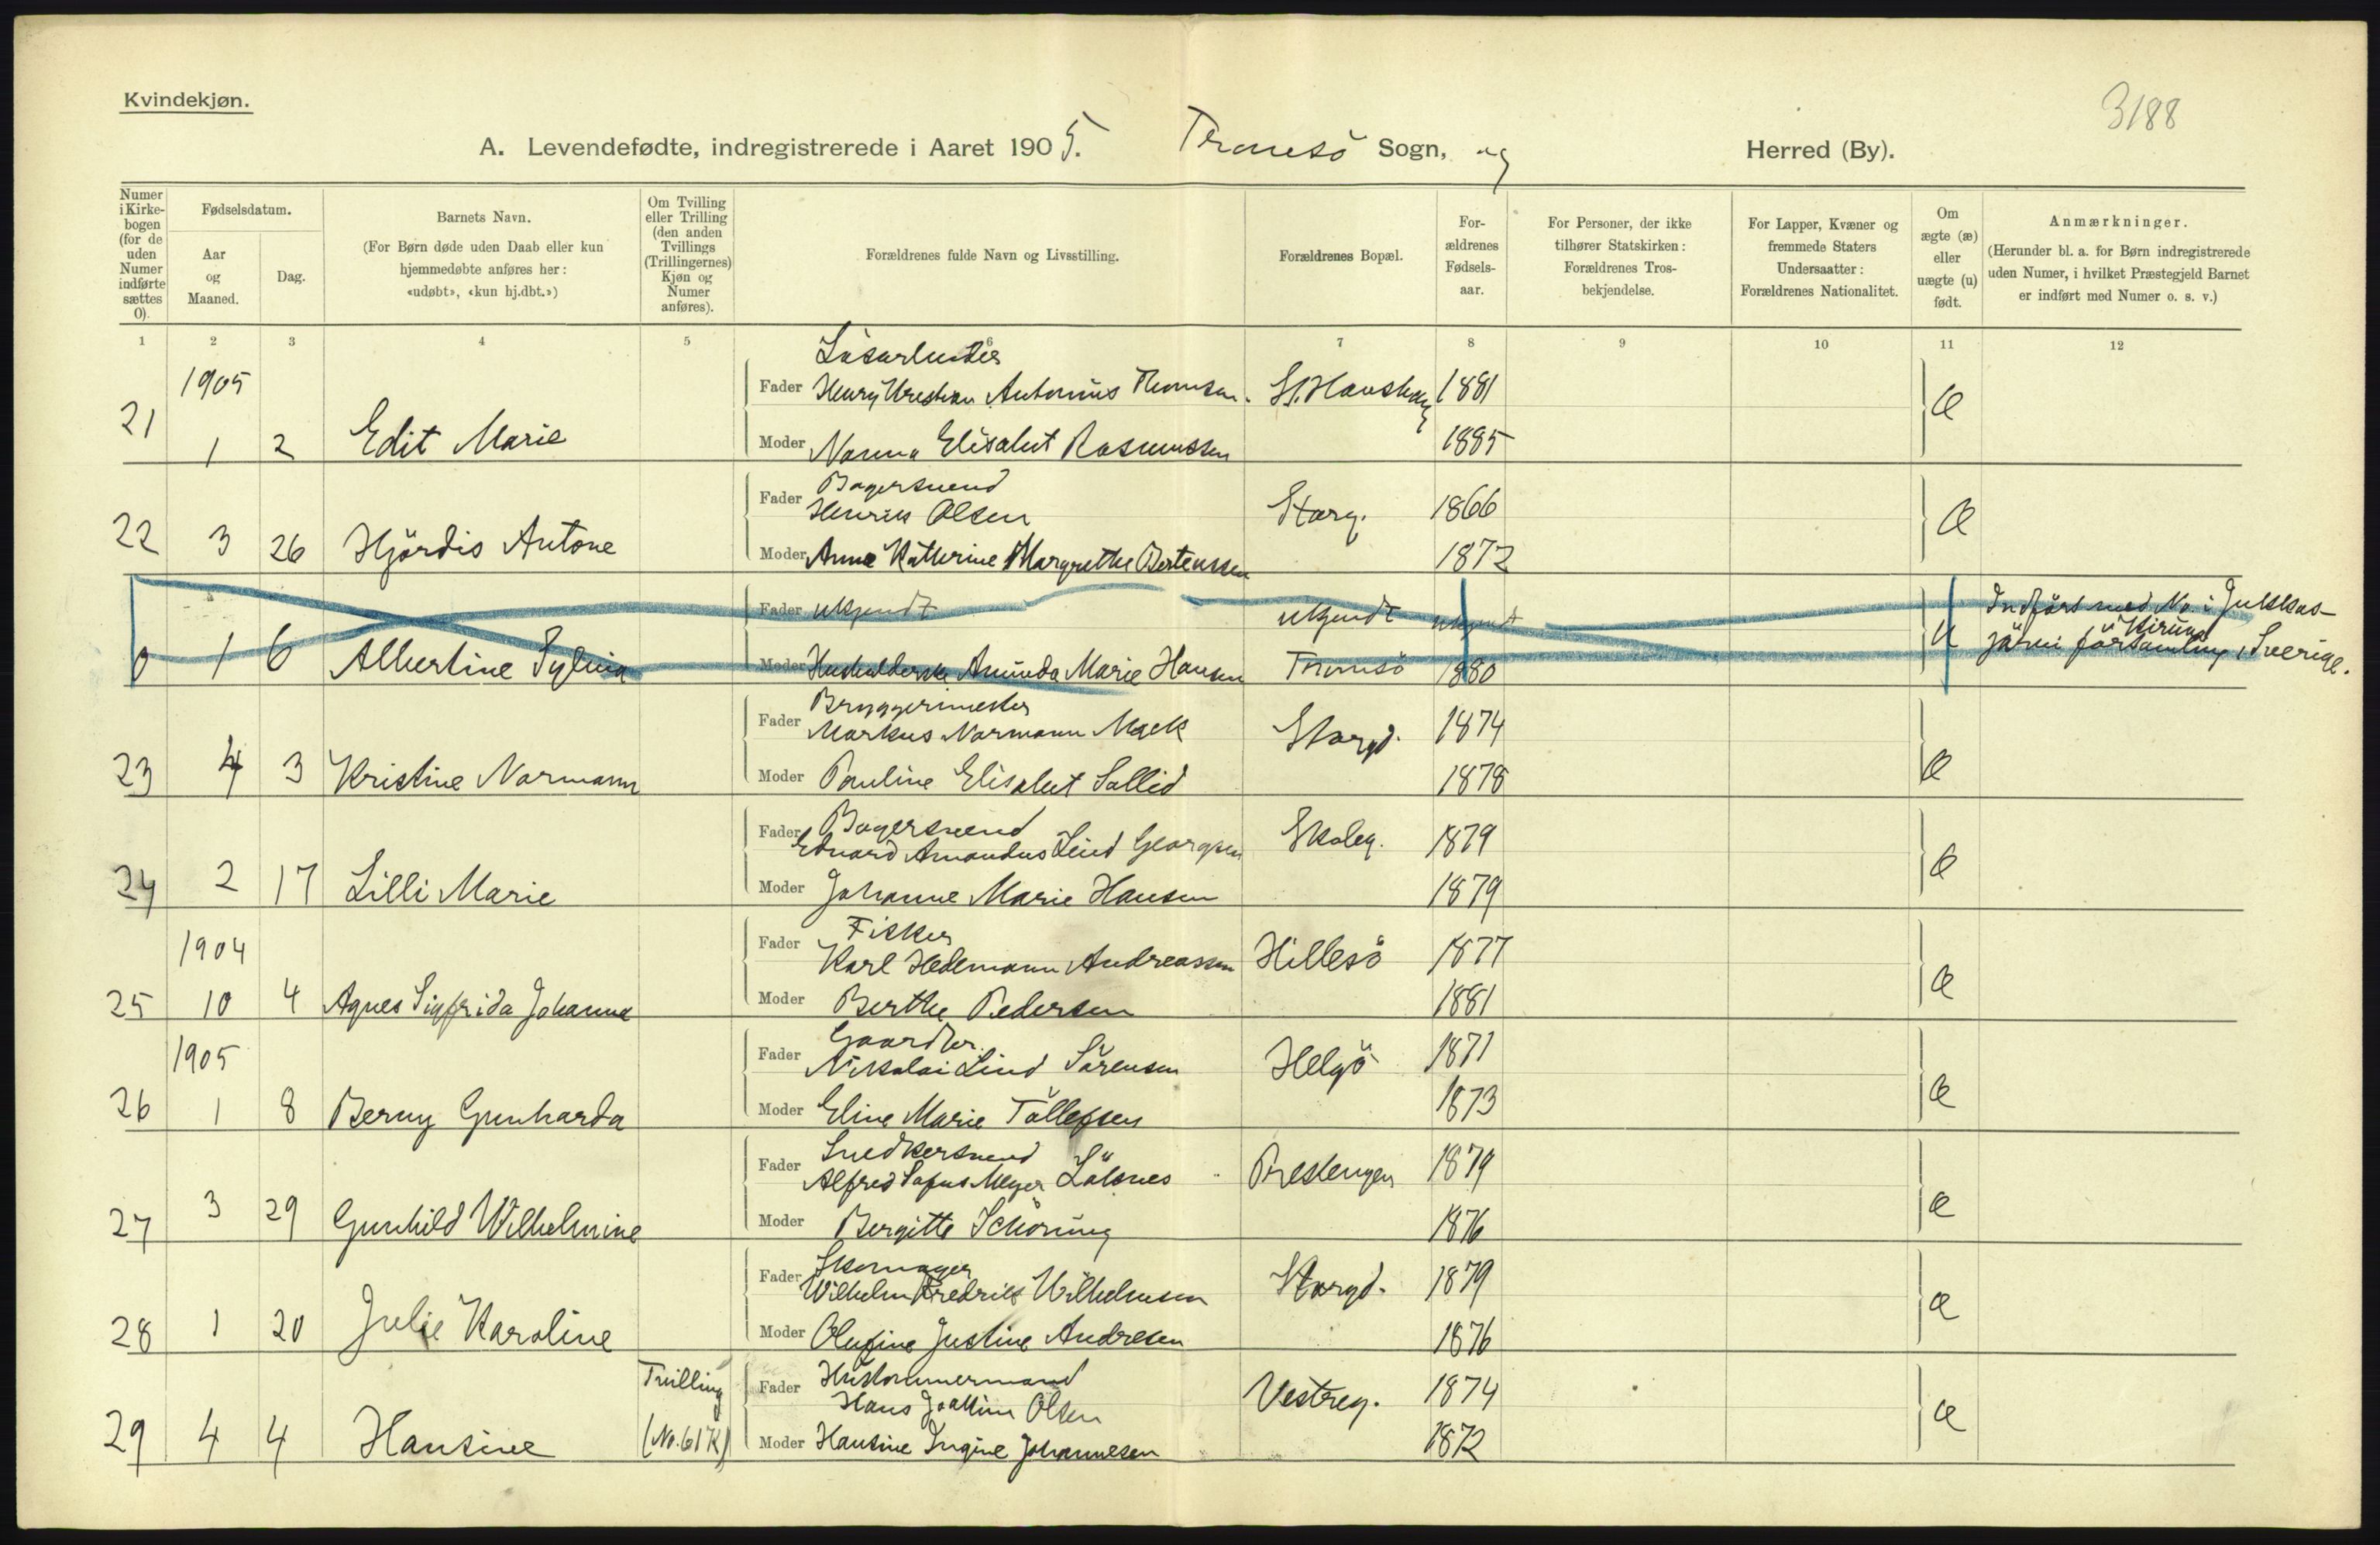 Kvindekjøn.
3188
A. Levendefødte, indregistrerede i Aaret 1905. Tromsö Sogn, og Herred (By).
Numer i Kirkebogen (for de uden Numer indførte sættes 0).
Fødselsdatum.
Aar og Maaned.
Dag.
Barnets Navn.
(For Børn døde uden Daab eller kun hjemmedøbte anføres her: «udøbt», «kun hj.dbt.»)
Om Tvilling eller Trilling (den anden Tvillings (Trillingernes) Kjøn og Numer anføres).
Forældrenes fulde Navn og Livsstilling.
Forældrenes Bopæl.
Forældrenes Fødselsaar.
For Personer, der ikke tilhører Statskirken: Forældrenes Trosbekjendelse.
For Lapper, Kvæner og fremmede Staters Undersaatter: Forældrenes Nationalitet.
Om ægte (æ) eller uægte (u) født.
Anmærkninger.
(Herunder bl. a. for Børn indregistrerede uden Numer, i hvilket Præstegjeld Barnet er indført med Numer o. s. v.)
1 2 3 4 5 6 7 8 9 10 11 12
Lösarbeider
1905 Fader Henry Kristian Antonius Thomsen. St. Hanshaug 1881 Æ
21 1 2 Edit Marie Moder Nanna Elisabet Rasmussen 1885
Bagersvend
Fader Henrik Olsen Storg. 1866 Æ
22 3 26 Hjördis Antone Moder Anna Katherine Margrethe Bertenssen 1872
Fader ukjendt ukjendt ukjendt Indfört med No. i Jukkas-
Kiruna
0 1 6 Albertine Sylvia Moder Husholderske Aminda Marie Hansen Tromsö 1880 u järvi församling i Sverige.
Bryggerimester
Fader Markus Normann Mack Storgd. 1874 Æ
23 4 3 Kristine Normann Moder Pauline Elisabet Sallid 1878
Bagersvend
Fader Edvard Amandus Lind Georgsen Skoleg. 1879 Æ
24 2 17 Lilli Marie Moder Johanne Marie Hansen 1879
Fisker
1904 Fader Karl Hedemann Andreassen Hillesö 1877 Æ
25 10 4 Agnes Sigfrida Johanna Moder Berthe Pedersen 1881
Gaardbr.
1905 Fader Nikolai Lind Sörensen Helgö 1871 Æ
26 1 8 Berny Gunharda Moder Eline Marie Töllefsen 1873
Snedkersvend
Fader Alfred Sofus Meyer Löksnes Prestengen 1879 Æ
27 3 29 Gunhild Wilhelmine Moder Bergitte Schöning 1876
Skomager
Fader Wilhelm Fredrik Wilhelmsen Storgd. 1879 Æ
28 1 20 Julie Karoline Moder Olufine Justine Andresen 1876
Tvilling Hustömmermand
Fader Hans Joakim Olsen Vestreg. 1874 Æ
29 4 4 Hansine (No. 61 K) Moder Hansine Ingine Johannesen 1872